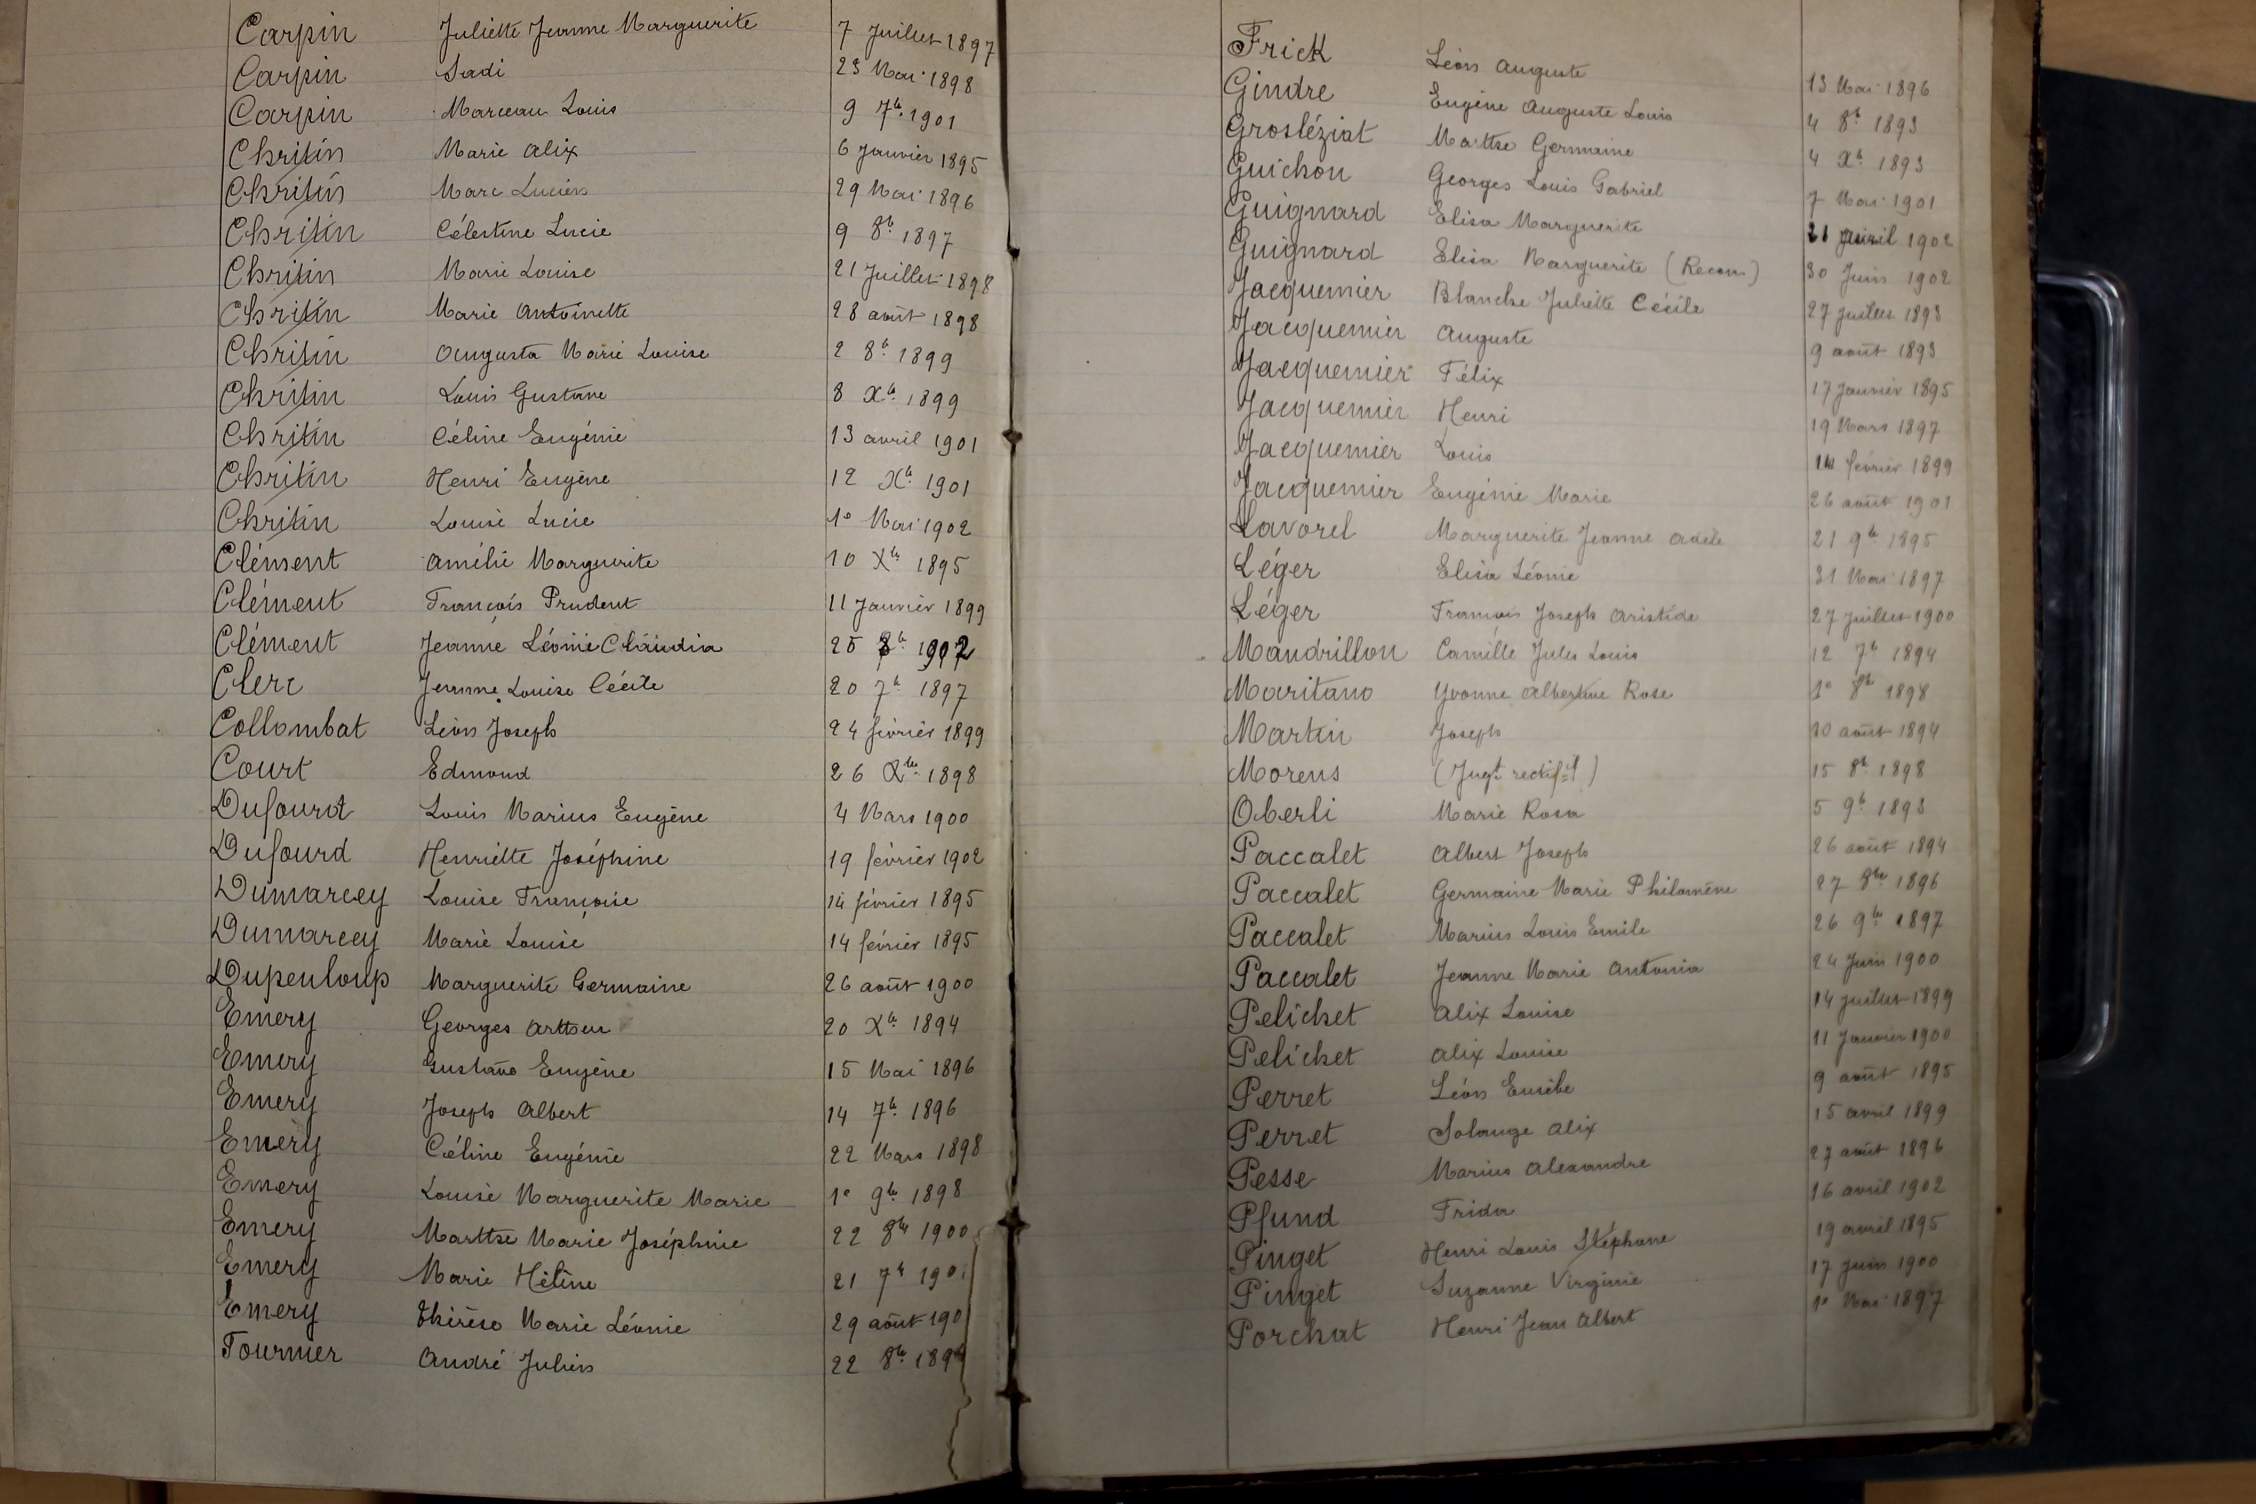 Carpin Juliette Jeanne Marguerite 7 Juillet 1897
Carpin Sadi 23 Mai 1898
Carpin Marceau Louis 9 7b. 1901
Chritin Marie Alix 6 Janvier 1895
Chritin Marc Lucien 29 Mai 1896
Chritin Célestine Lucie 9 8b. 1897
Chritin Marie Louise 21 Juillet 1898
Chritin Marie Antoinette 28 août 1898
Chritin Augusta Marie Louise 2 8b. 1899
Chritin Louis Gustave 8 Xb. 1899
Chritin Céline Eugénie 13 avril 1901
Chritin Henri Eugène 12 Xb. 1901
Chritin Louise Lucie 1e Mai 1902
Clément Amélie Marguerite 10 Xb. 1895
Clément François Prudent 11 Janvier 1899
Clément Jeanne Léonie Claudia 25 8b. 1902
Clerc Jeanne Louise Cécile 20 7b 1897
Collombat Léon Joseph 24 février 1899
Court Edmond 26 Xbre 1898
Dufourd Louis Marius Eugène 4 Mars 1900
Dufourd Henriette Joséphine 19 février 1902
Dumarcey Louise Françoise 14 février 1895
Dumarcey Marie Louise 14 février 1895
Dupenloup Marguerite Germaine 26 août 1900
Emery Georges Arthur 20 Xb. 1894
Emery Gustave Eugène 15 Mai 1896
Emery Joseph Albert 14 7b. 1896
Emery Céline Eugénie 22 Mars 1898
Emery Louise Marguerite Marie 1e 9b. 1898
Emery Marthe Marie Joséphine 22 8bre 1900
Emery Marie Hélène 21 7b 1901
Emery Thérèse Marie Léonie 29 août 190
Fournier André Julien 22 8b. 189
Frick Léon Auguste 13 Mai 1896
Gindre Eugène Auguste Louis 4 8b. 1893
Grosléziat Marthe Germaine 4 Xb. 1893
Guichon Georges Louis Gabriel 7 Mai 1901
Guignard Elisa Marguerite 21 avril 1902
Guignard Elisa Marguerite (Recon) 30 Juin 1902
Jacquemier Blanche Juliette Cécile 27 juillet 1893
Jacquemier Auguste 9 août 1893
Jacquemier Félix 17 Janvier 1895
Jacquemier Henri 19 Mars 1897
Jacquemier Louis février 1899
Jacquemier Eugénie Marie 26 août 1901
Lavorel Marguerite Jeanne Adèle 21 9b 1895
Léger Elisa Léonie 31 Mai 1897
Léger François Joseph Aristide 27 Juillet 1900
Mandrillon Camille Jules Louis 12 7b 1894
Maritano Yvonne Albertine Rose 1e 8b 1898
Martin Joseph 20 août 1894
Morens (Jugt rectiftf) 15 8b. 1898
Oberli Marie Rosa 5 9b. 1893
Paccalet Albert Joseph 26 août 1894
Paccalet Germaine Marie Philomène 27 8bre 1896
Paccalet Marius Louis Emile 26 9b. 1897
Paccalet Jeanne Marie Antonia 24 Juin 1900
Pelichet Alix Louise 14 juillet 1899
Pelichet Alix Louise 11 Janvier 1900
Perret Léon Eusèbe 9 août 1895
Perret Solange Alix 15 avril 1899
Pesse Marius Alexandre 27 août 1896
Pfund Frida 16 avril 1902
Pinget Henri Louis Stéphane 19 avril 1895
Pinget Suzanne Virginie 17 Juin 1900
Porchat Henri Jean Albert 1e Mai 1897